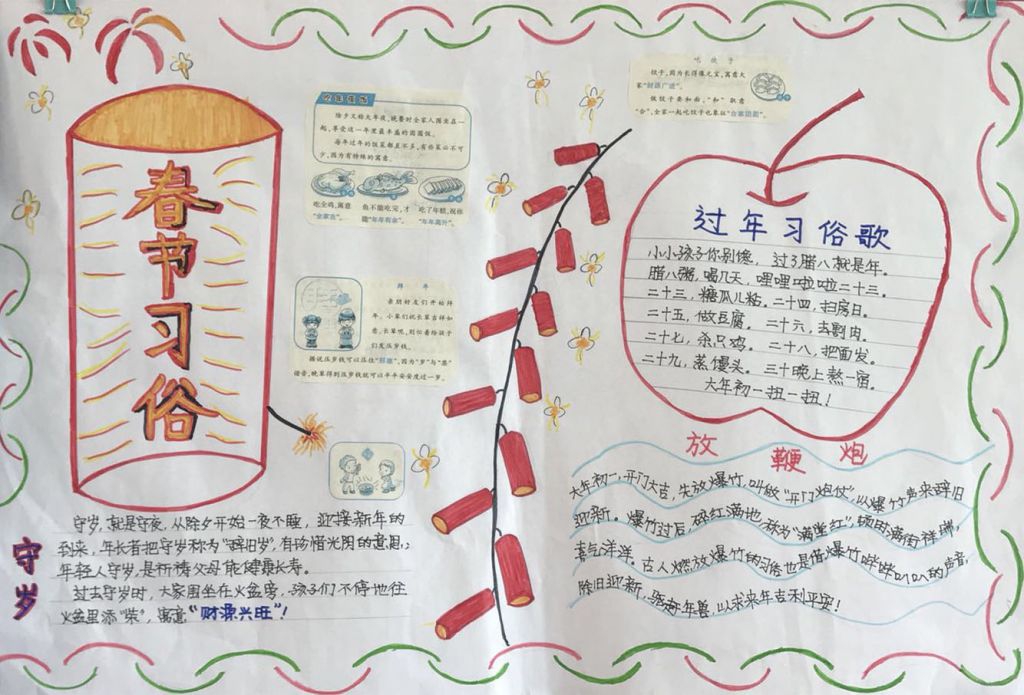 春节习俗
吃年夜饭
除夕又称大年夜,晚餐时全家人围坐在一
起,享受这一年里最丰盛的团圆饭。
每年过年的饭菜都差不多,有些菜必不可
少,因为有特殊的寓意。
吃全鸡,寓意
“全家吉”。
鱼不能吃完,才
能“年年有余”。
吃了年糕,祝你
“年年高升”。
拜年
亲朋好友们开始拜
年。小辈们祝长辈吉祥如
意,长辈呢,则忙着给孩子
们发压岁钱。
据说压岁钱可以压住“邪祟”,因为“岁”与“祟”
谐音,晚辈得到压岁钱就可以平平安安度过一岁。
守岁
守岁,就是守夜,从除夕开始一夜不睡,迎接新年的
到来,年长者把守岁称为“辞旧岁”,有珍惜光阴的意思;
年轻人守岁,是祈祷父母能健康长寿。
过去守岁时,大家围坐在火盆旁,孩子们不停地往
火盆里添“柴”,寓意“财源兴旺”!
吃饺子
饺子,因为长得像元宝,寓意大
家“财源广进”。
做饺子要和面,“和”就意
“合”,全家一起吃饺子也象征“合家团圆”。
过年习俗歌
小小孩子你别馋,过了腊八就是年。
腊八粥,喝几天,哩哩啦啦二十三。
二十三,糖瓜儿粘。二十四,扫房日。
二十五,做豆腐。二十六,去割肉。
二十七,杀只鸡。二十八,把面发。
二十九,蒸馒头。三十晚上熬一宿。
大年初一扭一扭!
放鞭炮
大年初一,开门大吉,先放爆竹,叫做“开门炮仗”,以爆竹声来辞旧
迎新。爆竹过后,碎红满地,称为“满堂红”,顿时满街祥瑞,
喜气洋洋。古人燃放爆竹的习俗也是借爆竹哔哔叭叭的声音,
除旧迎新,驱赶年兽,以求来年吉利平安!